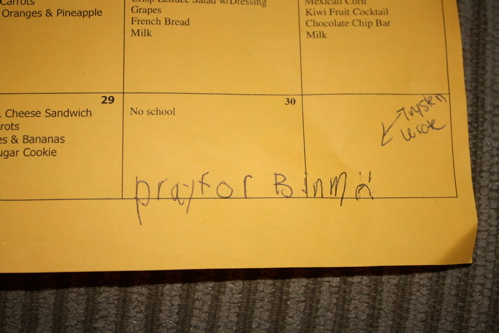 Carrots
Oranges & Pineapple
Crisp Lettuce Salad w/Dressing
Grapes
French Bread
Milk
Mexican Corn
Kiwi Fruit Cocktail
Chocolate Chip Bar
Milk
29
Cheese Sandwich
rots
es & Bananas
ugar Cookie
30
No school
Trysten
wrote
pray for